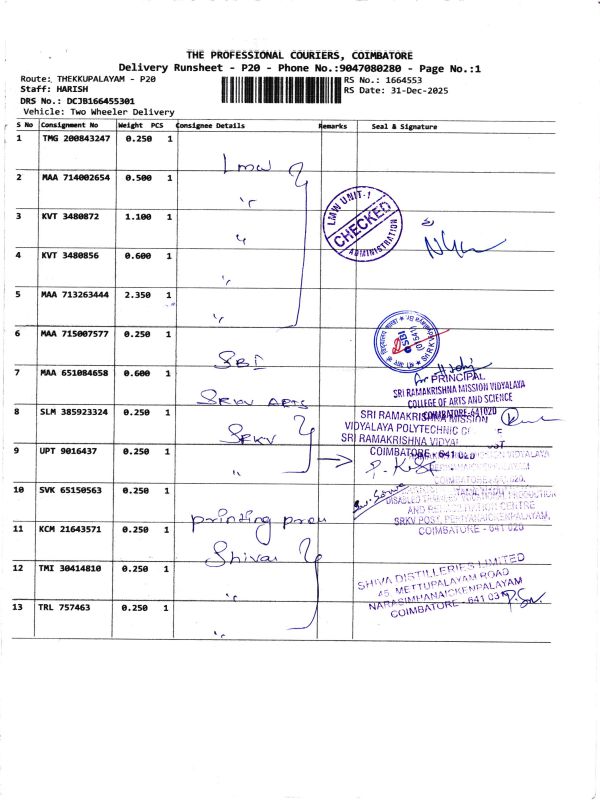 THE PROFESSIONAL COURIERS, COIMBATORE
Delivery Runsheet - P20 - Phone No.:9047080280 - Page No.:1
Route: THEKKUPALAYAM - P20 RS No.: 1664553
Staff: HARISH RS Date: 31-Dec-2025
DRS No.: DCJB166455301
Vehicle: Two Wheeler Delivery
S No Consignment No Weight PCS Consignee Details Remarks Seal & Signature
1 TMG 200843247 0.250 1 Lmw
2 MAA 714002654 0.500 1 "
LMW UNIT-1 CHECKED ADMINISTRATION
3 KVT 3480872 1.100 1 "
4 KVT 3480856 0.600 1 "
5 MAA 713263444 2.350 1 "
6 MAA 715007577 0.250 1 SBI
7 MAA 651084658 0.600 1 SRKV ARTS
PRINCIPAL
SRI RAMAKRISHNA MISSION VIDYALAYA
COLLEGE OF ARTS AND SCIENCE
COIMBATORE-641020
8 SLM 385923324 0.250 1 SRKV
SRI RAMAKRISHNA MISSION
VIDYALAYA POLYTECHNIC
SRI RAMAKRISHNA
COIMBATORE - 641 020
9 UPT 9016437 0.250 1 "
10 SVK 65150563 0.250 1 printing press
PRODUCTION
CENTRE
SRKV POST, PERIYANAICKENPALAYAM,
COIMBATORE - 641 020
11 KCM 21643571 0.250 1 Shiva
12 TMI 30414810 0.250 1 "
SHIVA DISTILLERIES LIMITED
45, METTUPALAYAM ROAD
NARASIMHANAICKENPALAYAM
COIMBATORE - 641 031
13 TRL 757463 0.250 1 "